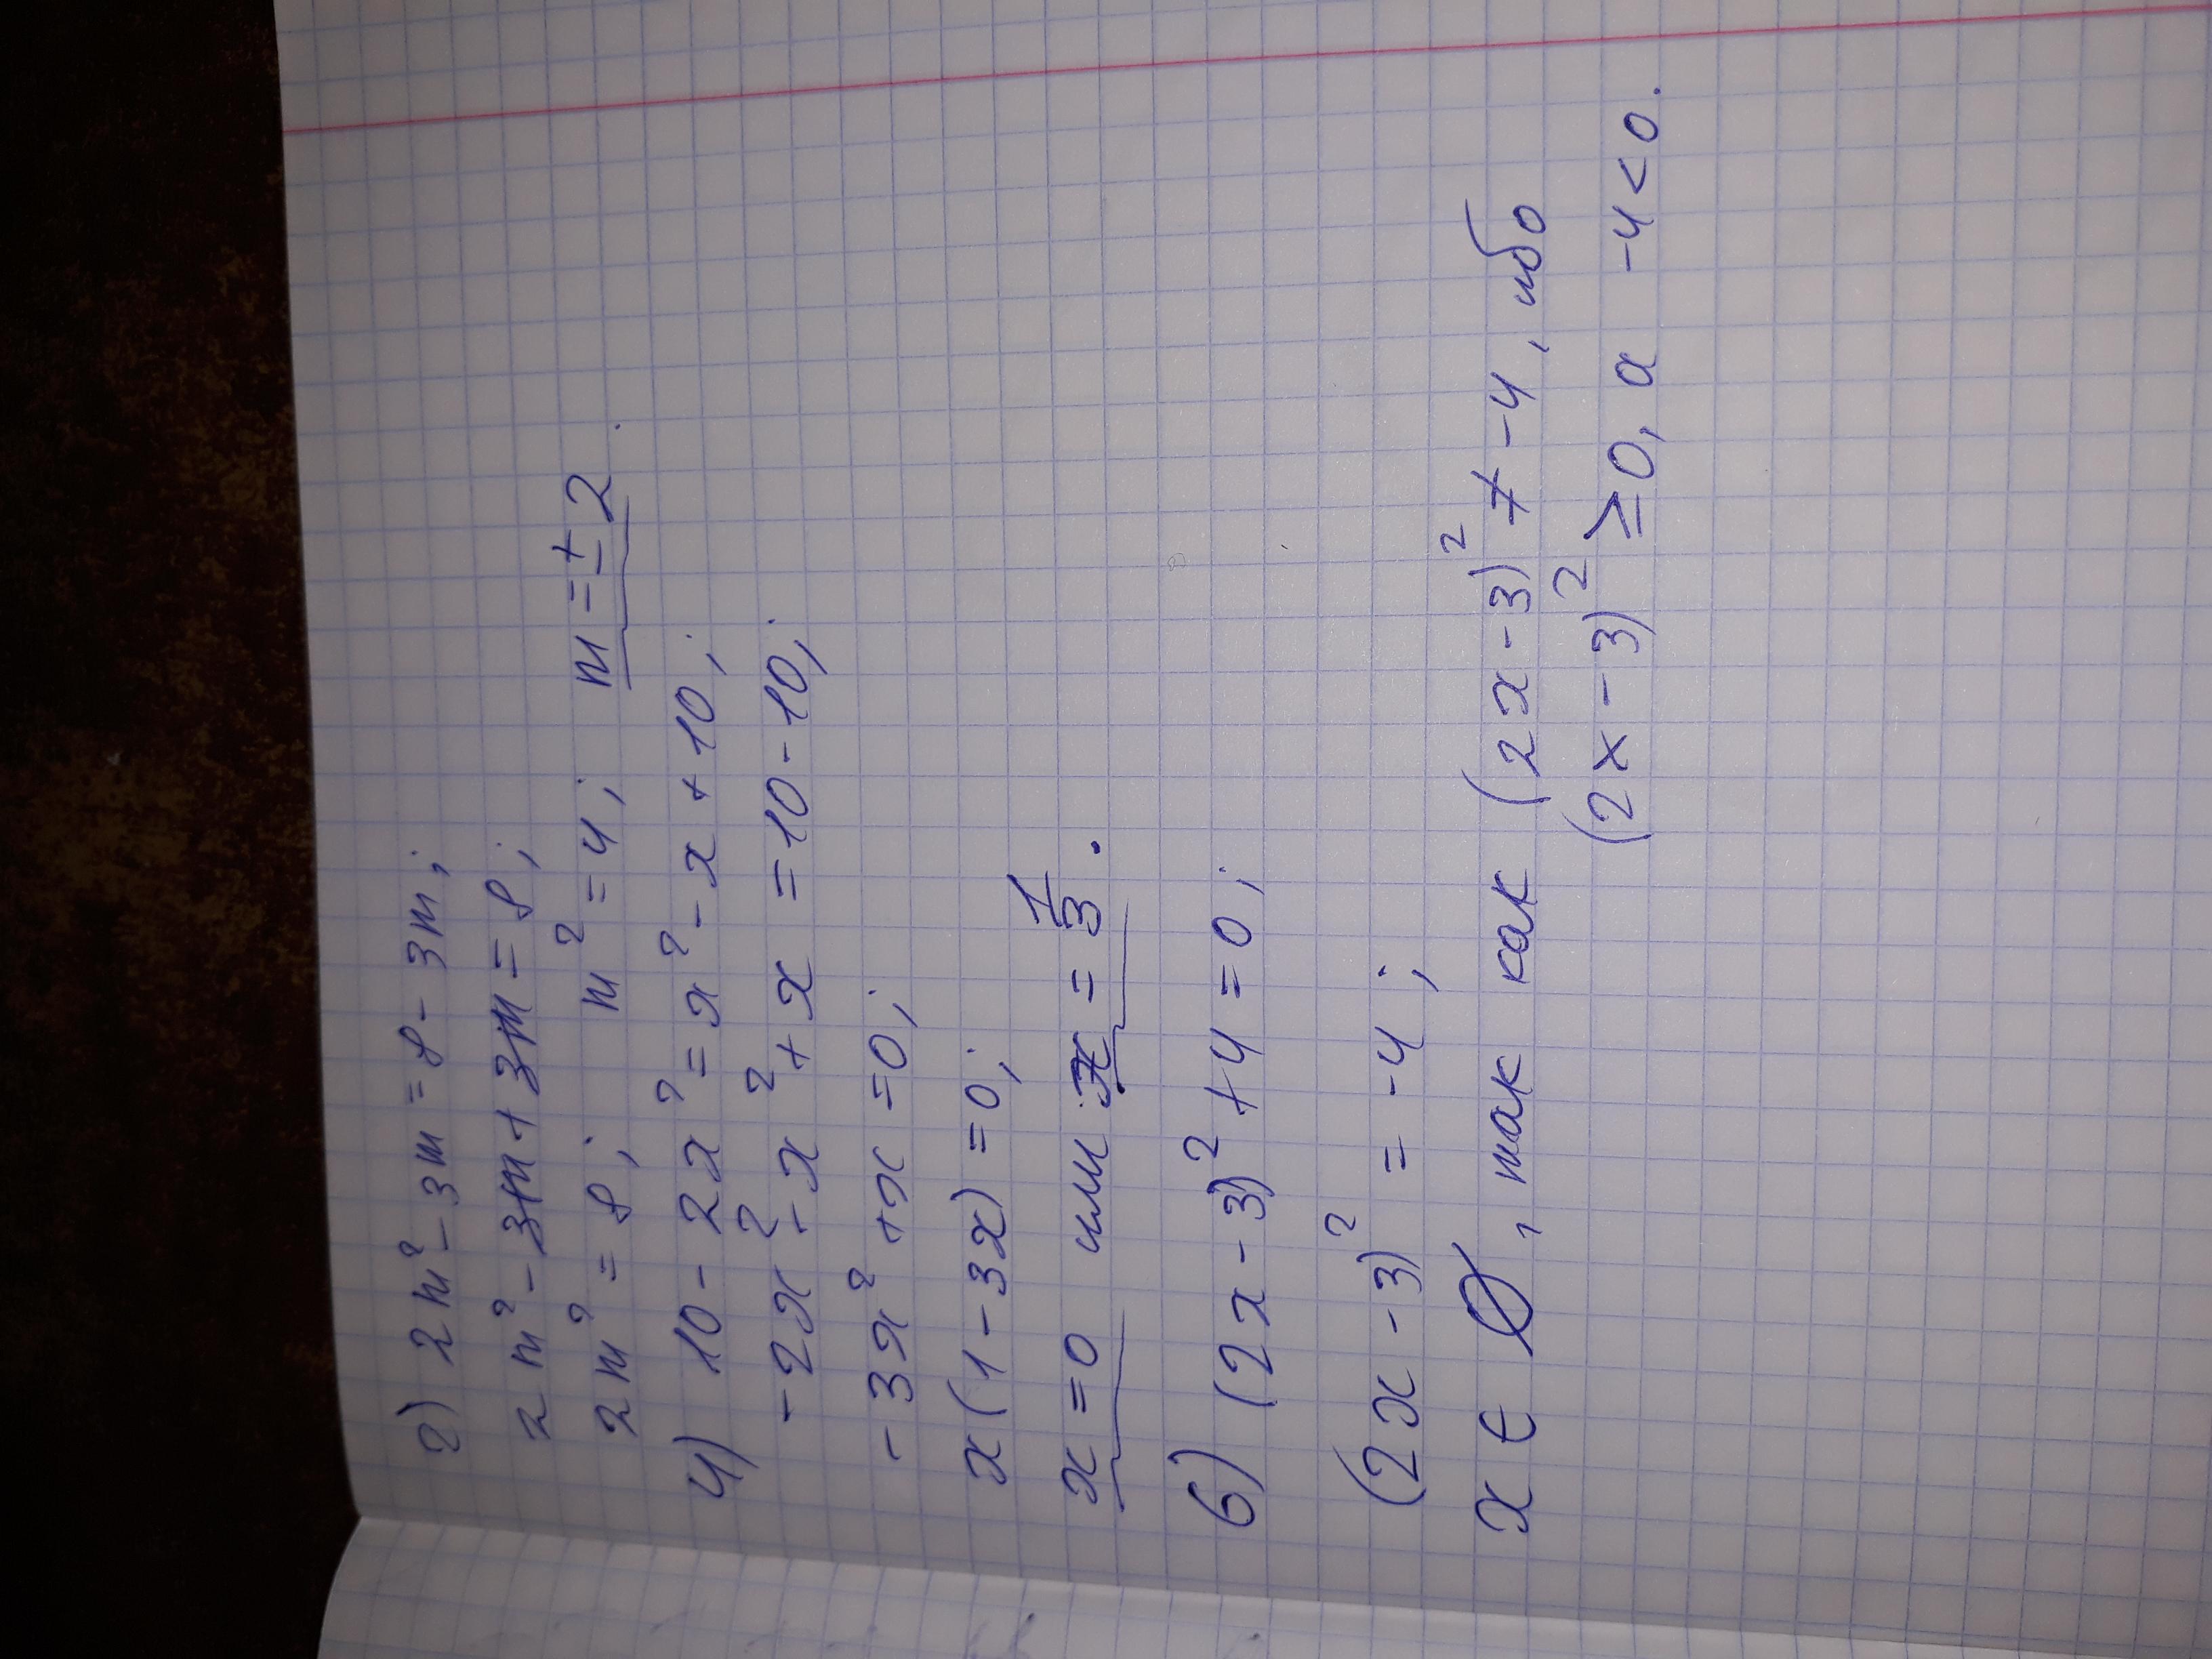 2) 2m² - 3m = 8 - 3m;
2m² - 3m + 3m = 8;
2m² = 8; m² = 4; m = ± 2.
4) 10 - 2x² = x² - x + 10;
-2x² - x² + x = 10 - 10;
-3x² + x = 0;
x(1 - 3x) = 0;
x = 0 или x = 1/3.
6) (2x - 3)² + 4 = 0;
(2x - 3)² = -4;
x ∈ ∅, так как (2x - 3)² ≠ -4, ибо
(2x - 3)² ≥ 0, а -4 < 0.